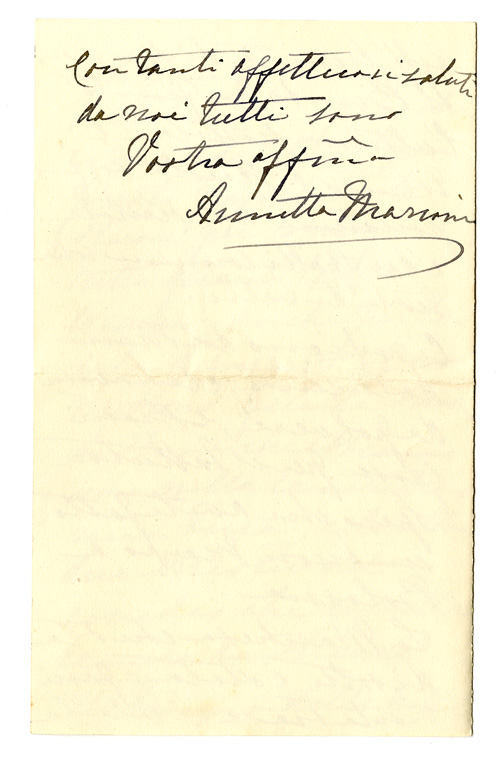 Con tanti affettuosi saluti
da noi tutti sono
Vostra affma
Annetta Marconi